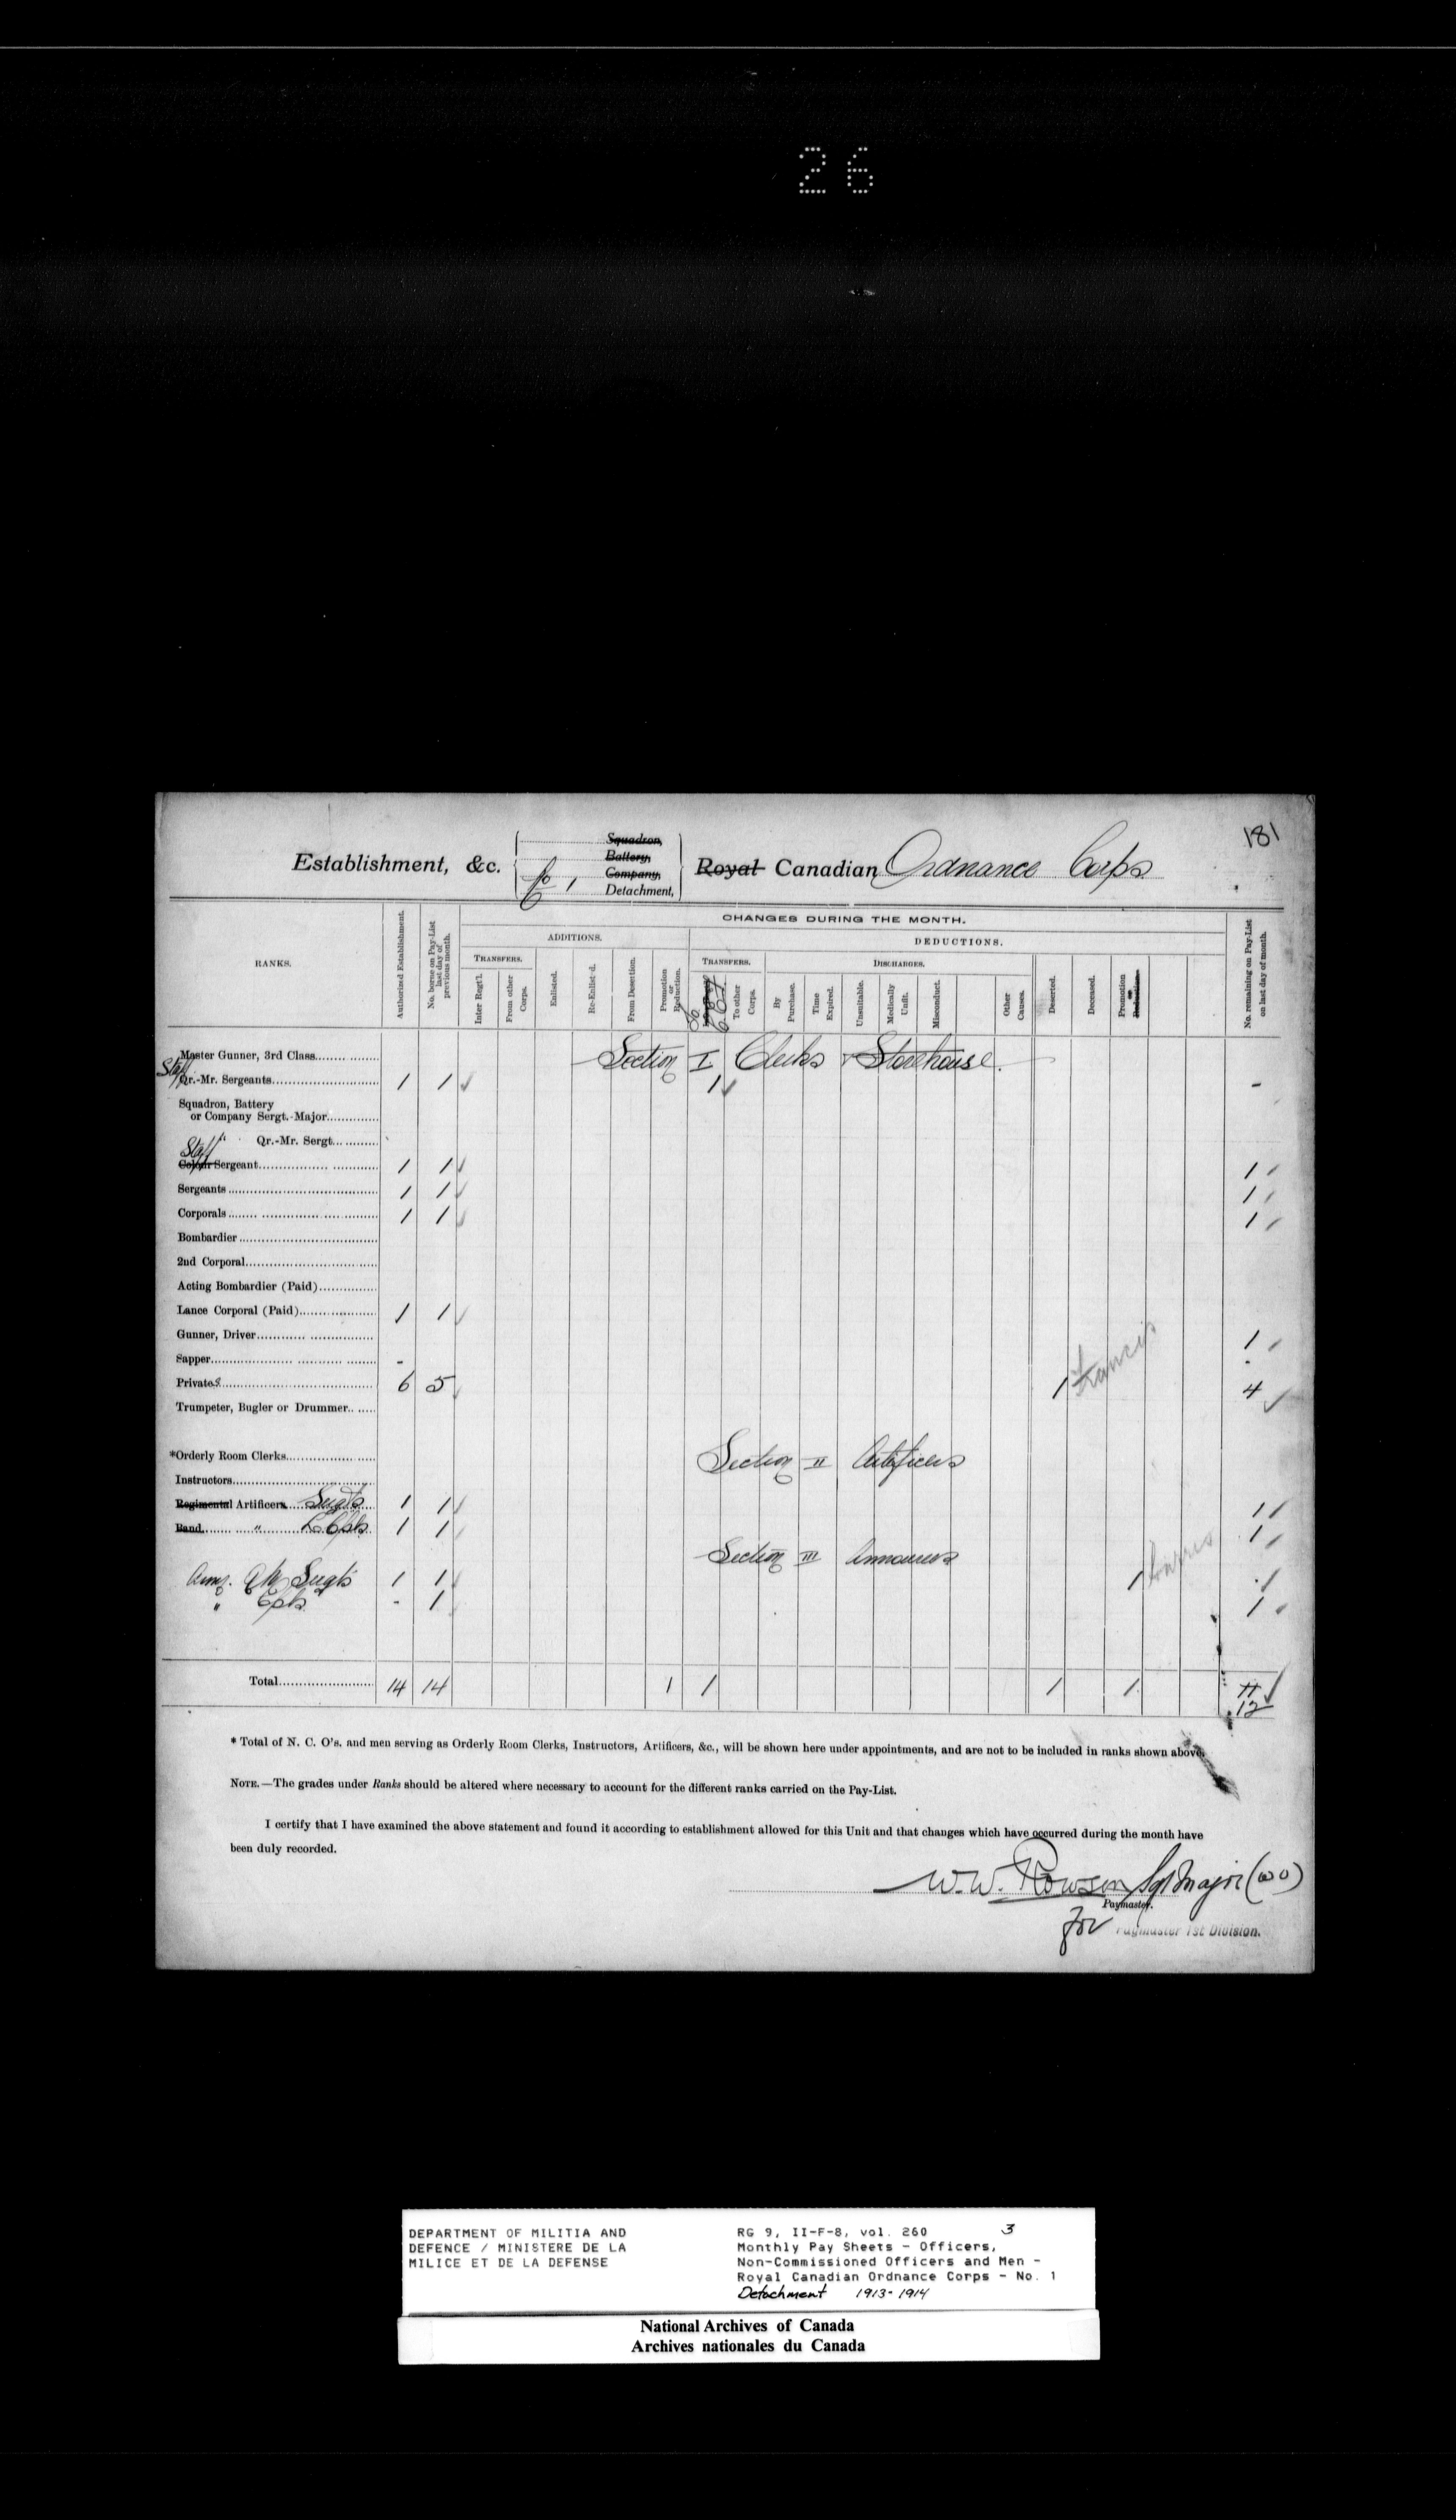 26
181
Establishment, &c.
Squadron,
Battery,
Company,
1 Detachment,
Royal Canadian Ordnance Corps
RANKS.
Authorized Establishment.
No. borne on Pay-List last day of previous month.
CHANGES DURING THE MONTH.
ADDITIONS.
DEDUCTIONS.
TRANSFERS.
TRANSFERS.
DISCHARGES.
Inter Regt'l.
From other Corps.
Enlisted.
Re-Enlist'd.
From Desertion.
Promotion or Reduction.
To other Corps.
By Purchase.
Time Expired.
Unsuitable.
Medically Unfit.
Misconduct.
Other Causes.
Deserted.
Deceased.
Promotion or Reduction.
No. remaining on Pay-List on last day of month.
Master Gunner, 3rd Class
Section I Clerks & Storehouse.
Staff Qr.-Mr. Sergeants 1 1 1 -
Squadron, Battery
or Company Sergt.-Major
" Qr.-Mr. Sergt.
Staff
Colour Sergeant 1 1 1
Sergeants 1 1 1
Corporals 1 1 1
Bombardier
2nd Corporal
Acting Bombardier (Paid)
Lance Corporal (Paid) 1 1
Gunner, Driver 1
Sapper -
Privates 6 5 1 Francis 4
Trumpeter, Bugler or Drummer
*Orderly Room Clerks
Section II Artificers
Instructors
Regimental Artificers Sergts 1 1 1
Band " L Cpls 1 1 1
Section III Armourers
Armr. QM Sergts 1 1 1 1
" Cpls - 1 1
Total 14 14 1 1 1 1 11
12
* Total of N. C. O's. and men serving as Orderly Room Clerks, Instructors, Artificers, &c., will be shown here under appointments, and are not to be included in ranks shown above.
NOTE.—The grades under Ranks should be altered where necessary to account for the different ranks carried on the Pay-List.
I certify that I have examined the above statement and found it according to establishment allowed for this Unit and that changes which have occurred during the month have
been duly recorded.
W.W. Rowson Sgt Major (WO)
Paymaster.
for Paymaster 1st Division.
DEPARTMENT OF MILITIA AND
DEFENCE / MINISTERE DE LA
MILICE ET DE LA DEFENSE
RG 9, II-F-8, vol. 260 3
Monthly Pay Sheets - Officers,
Non-Commissioned Officers and Men -
Royal Canadian Ordnance Corps - No. 1
Detachment 1913-1914
National Archives of Canada
Archives nationales du Canada